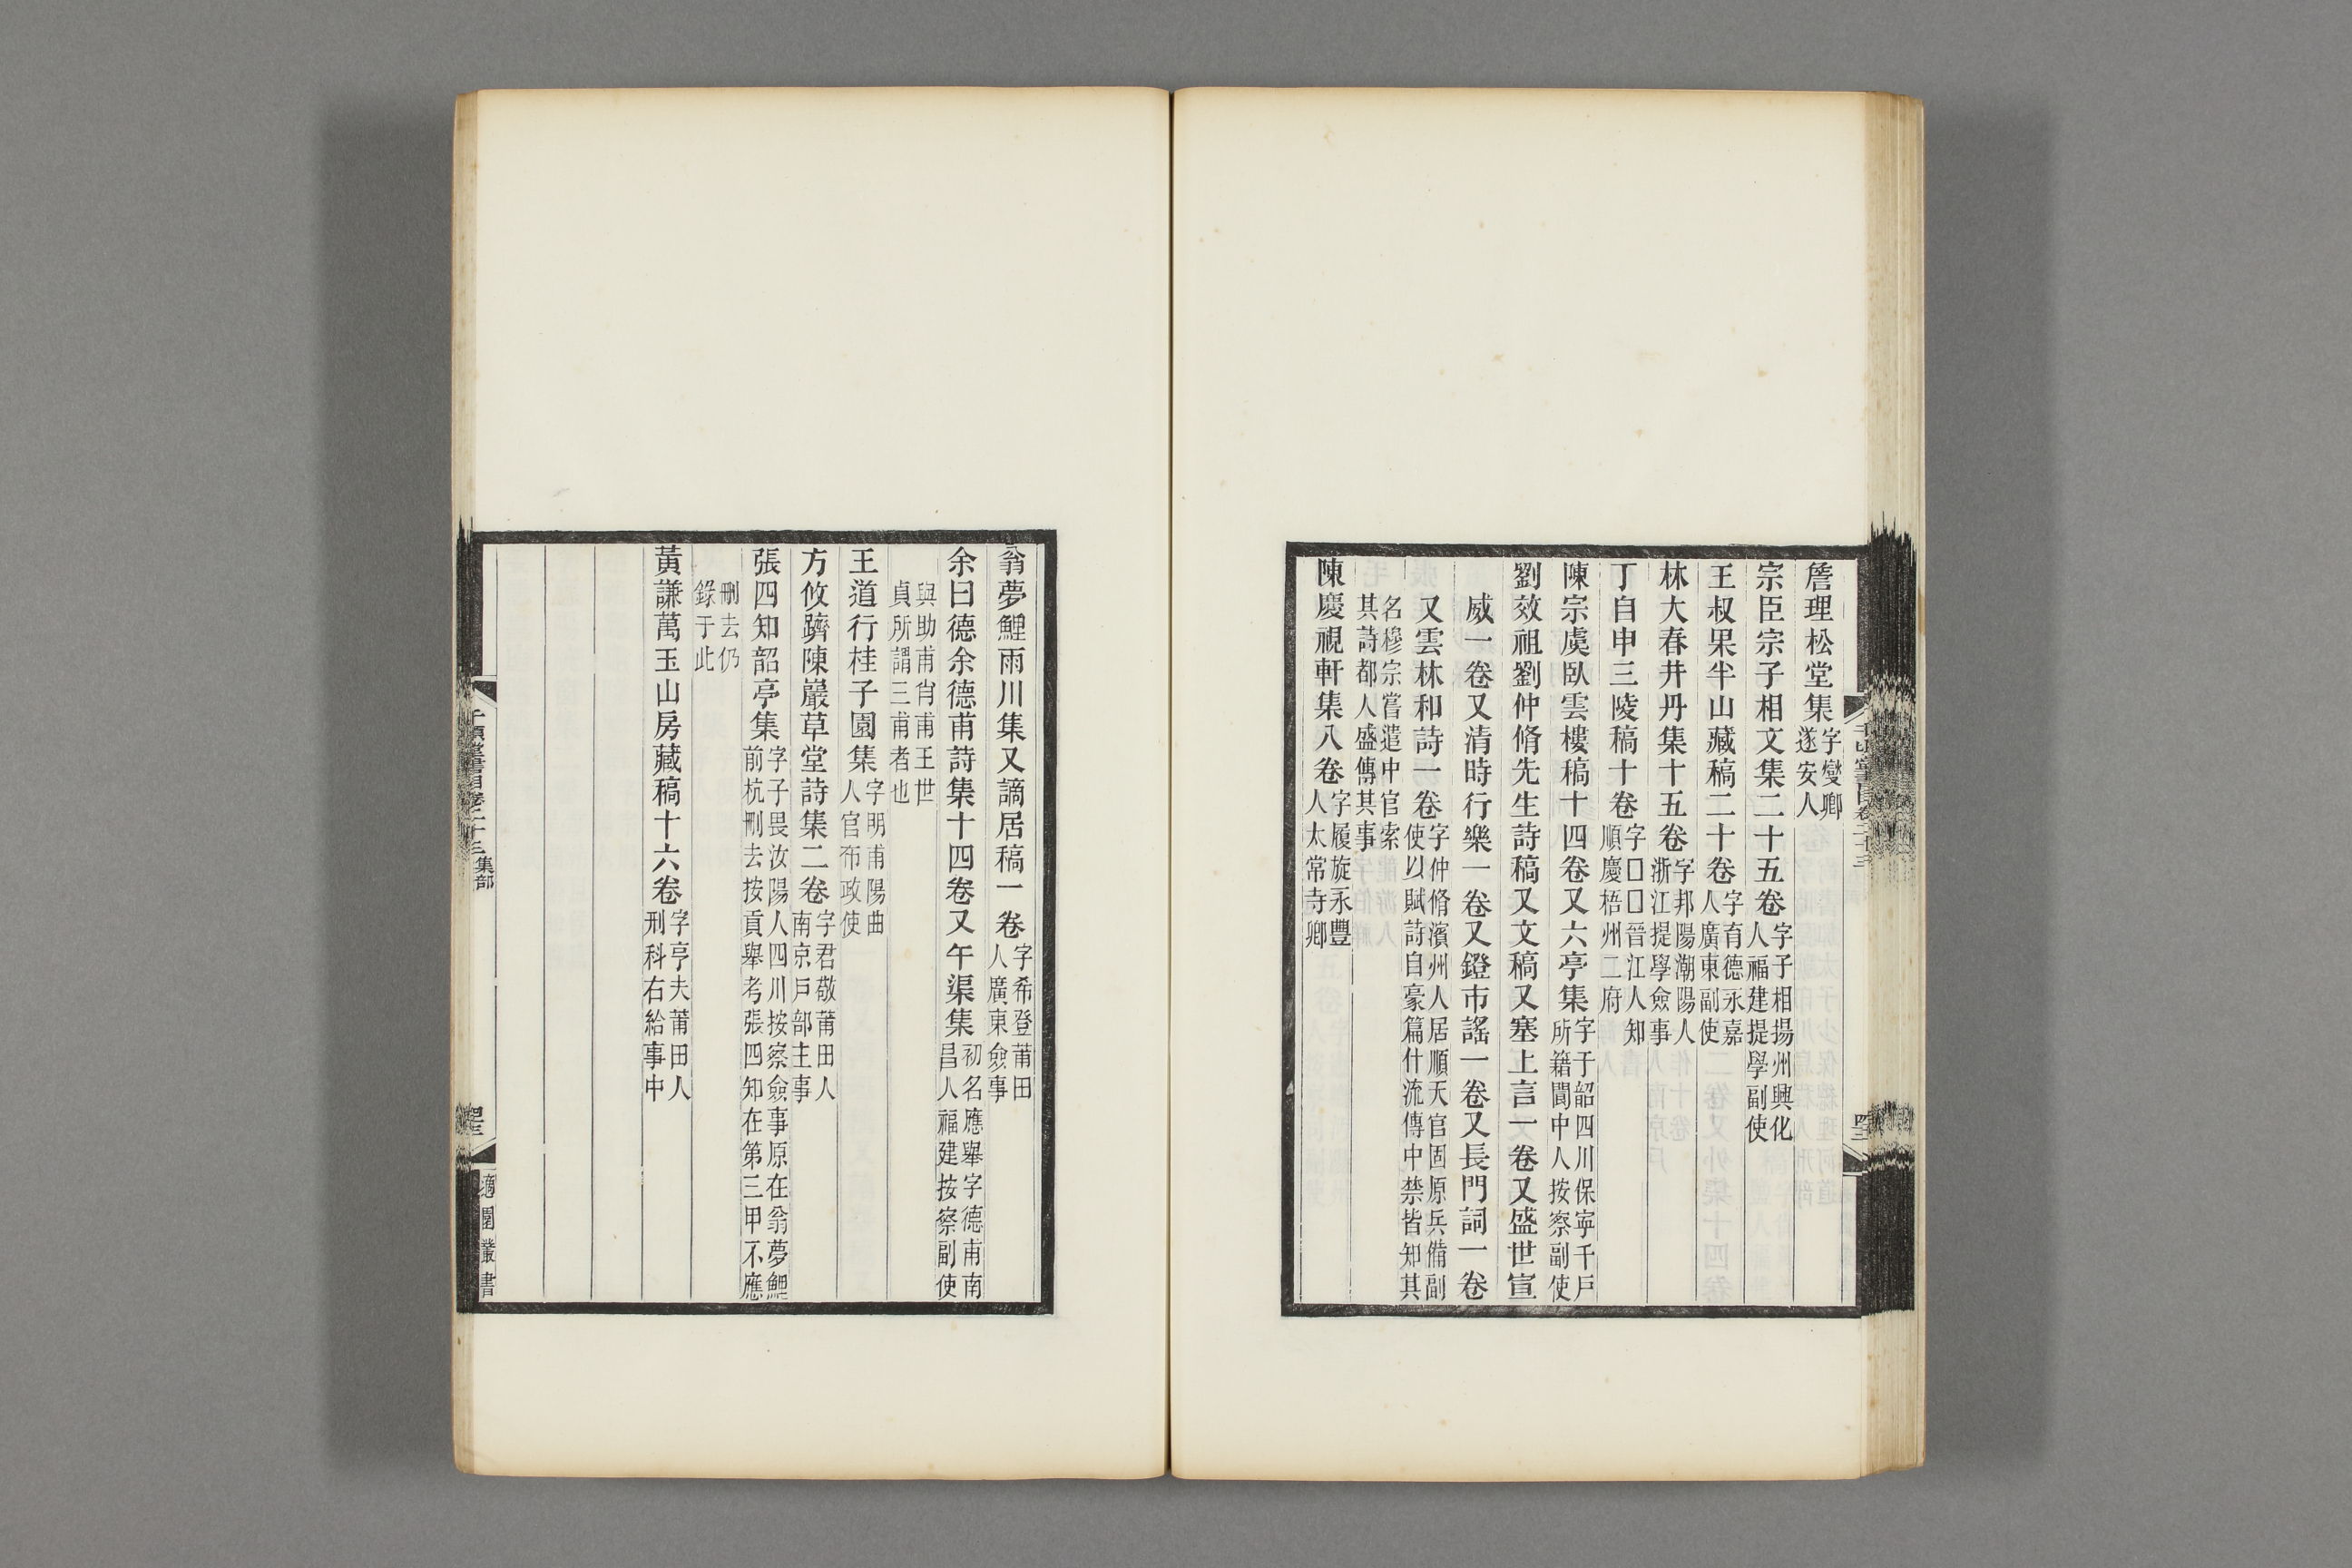 詹理松堂集字燮卿遂安人
宗臣宗子相文集二十五卷字子相揚州興化人福建提學副使
王叔杲半山藏稿二十卷字育德永嘉人廣東副使
林大春井丹集十五卷字邦陽潮陽人浙江提學僉事
丁自申三陵稿十卷字□□□晉江人知順慶梧州二府
陳宗虞臥雲樓稿十四卷又六亭集字于韶四川保寧千戶所籍閬中人按察副使
劉效祖劉仲脩先生詩稿又文稿又塞上言一卷又盛世宣
威一卷又清時行樂一卷又鐙市謠一卷又長門詞一卷
又雲林和詩一卷字仲脩濱州人居順天官固原兵備副使以賦詩自豪篇什流傳中禁皆知其
名穆宗嘗遣中官索其詩都人盛傳其事
陳慶視軒集八卷字履旋永豐人太常寺卿
翁夢鯉雨川集又謫居稿一卷字希登莆田人廣東僉事
余曰德余德甫詩集十四卷又午渠集初名應舉字德甫南昌人福建按察副使
與助甫肖甫王世貞所謂三甫者也
王道行桂子園集字明甫陽曲人官布政使
方攸躋陳巖草堂詩集二卷字君敬莆田人南京戶部主事
張四知韶亭集字子畏汝陽人四川按察僉事原在翁夢鯉前杭刪去按貢舉考張四知在第三甲不應
刪去仍錄于此
黃謙萬玉山房藏稿十六卷字亨夫莆田人刑科右給事中
千頃堂書目卷二十三 集部
適園叢書